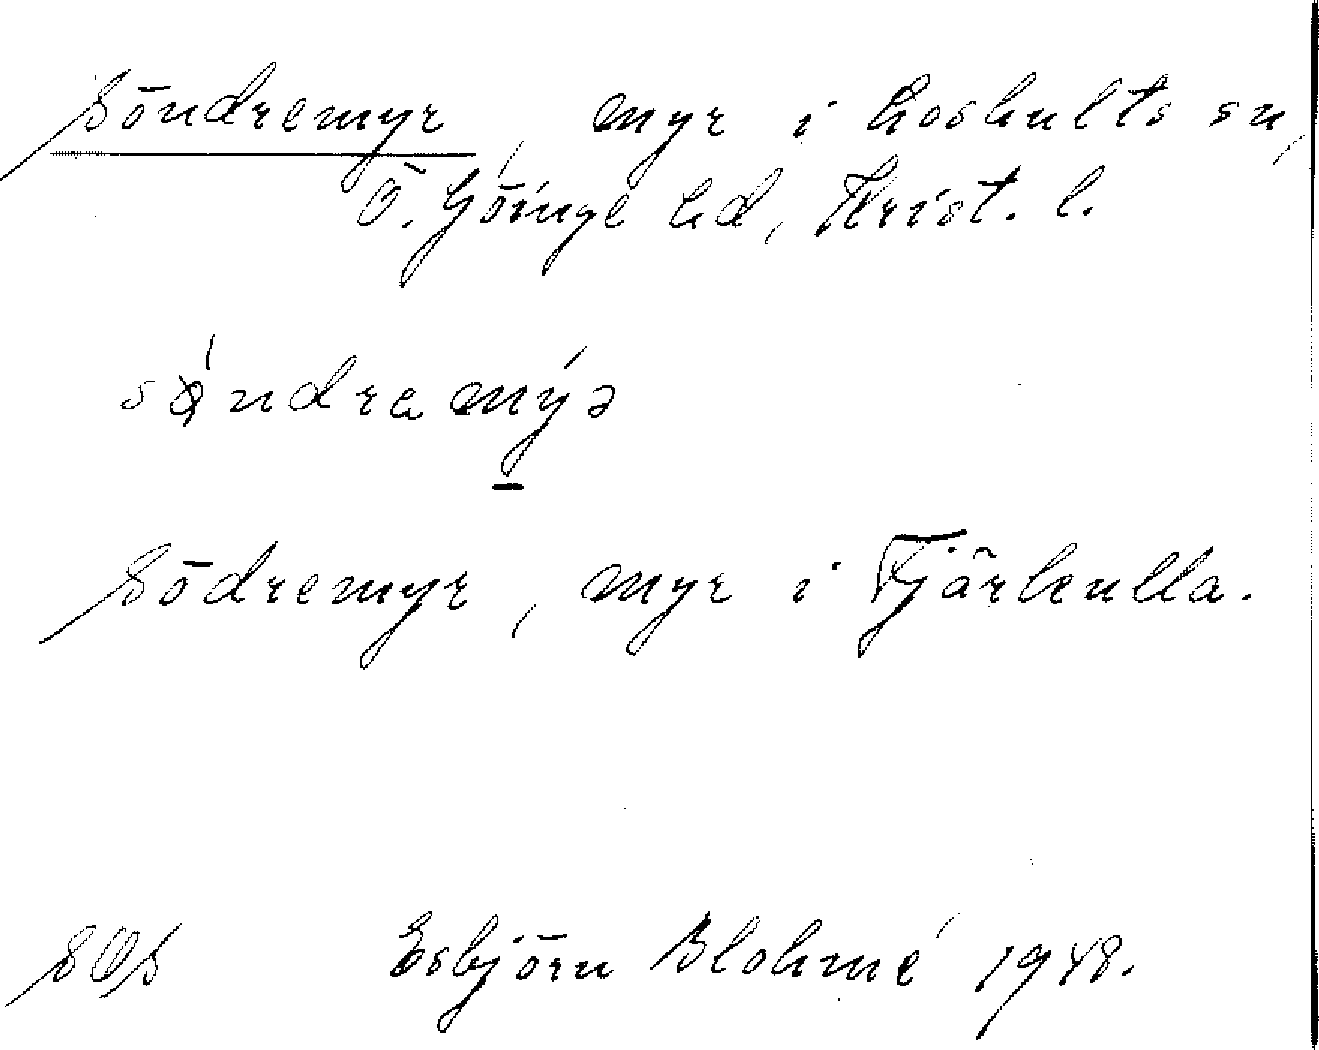 Söndremyr, myr i Loshults sn,
Ö. Göinge hd, Krist. l.
sǿndramýɔ
Södremyr, myr i Tjärkulla.
Esbjörn Blohmé 1948.